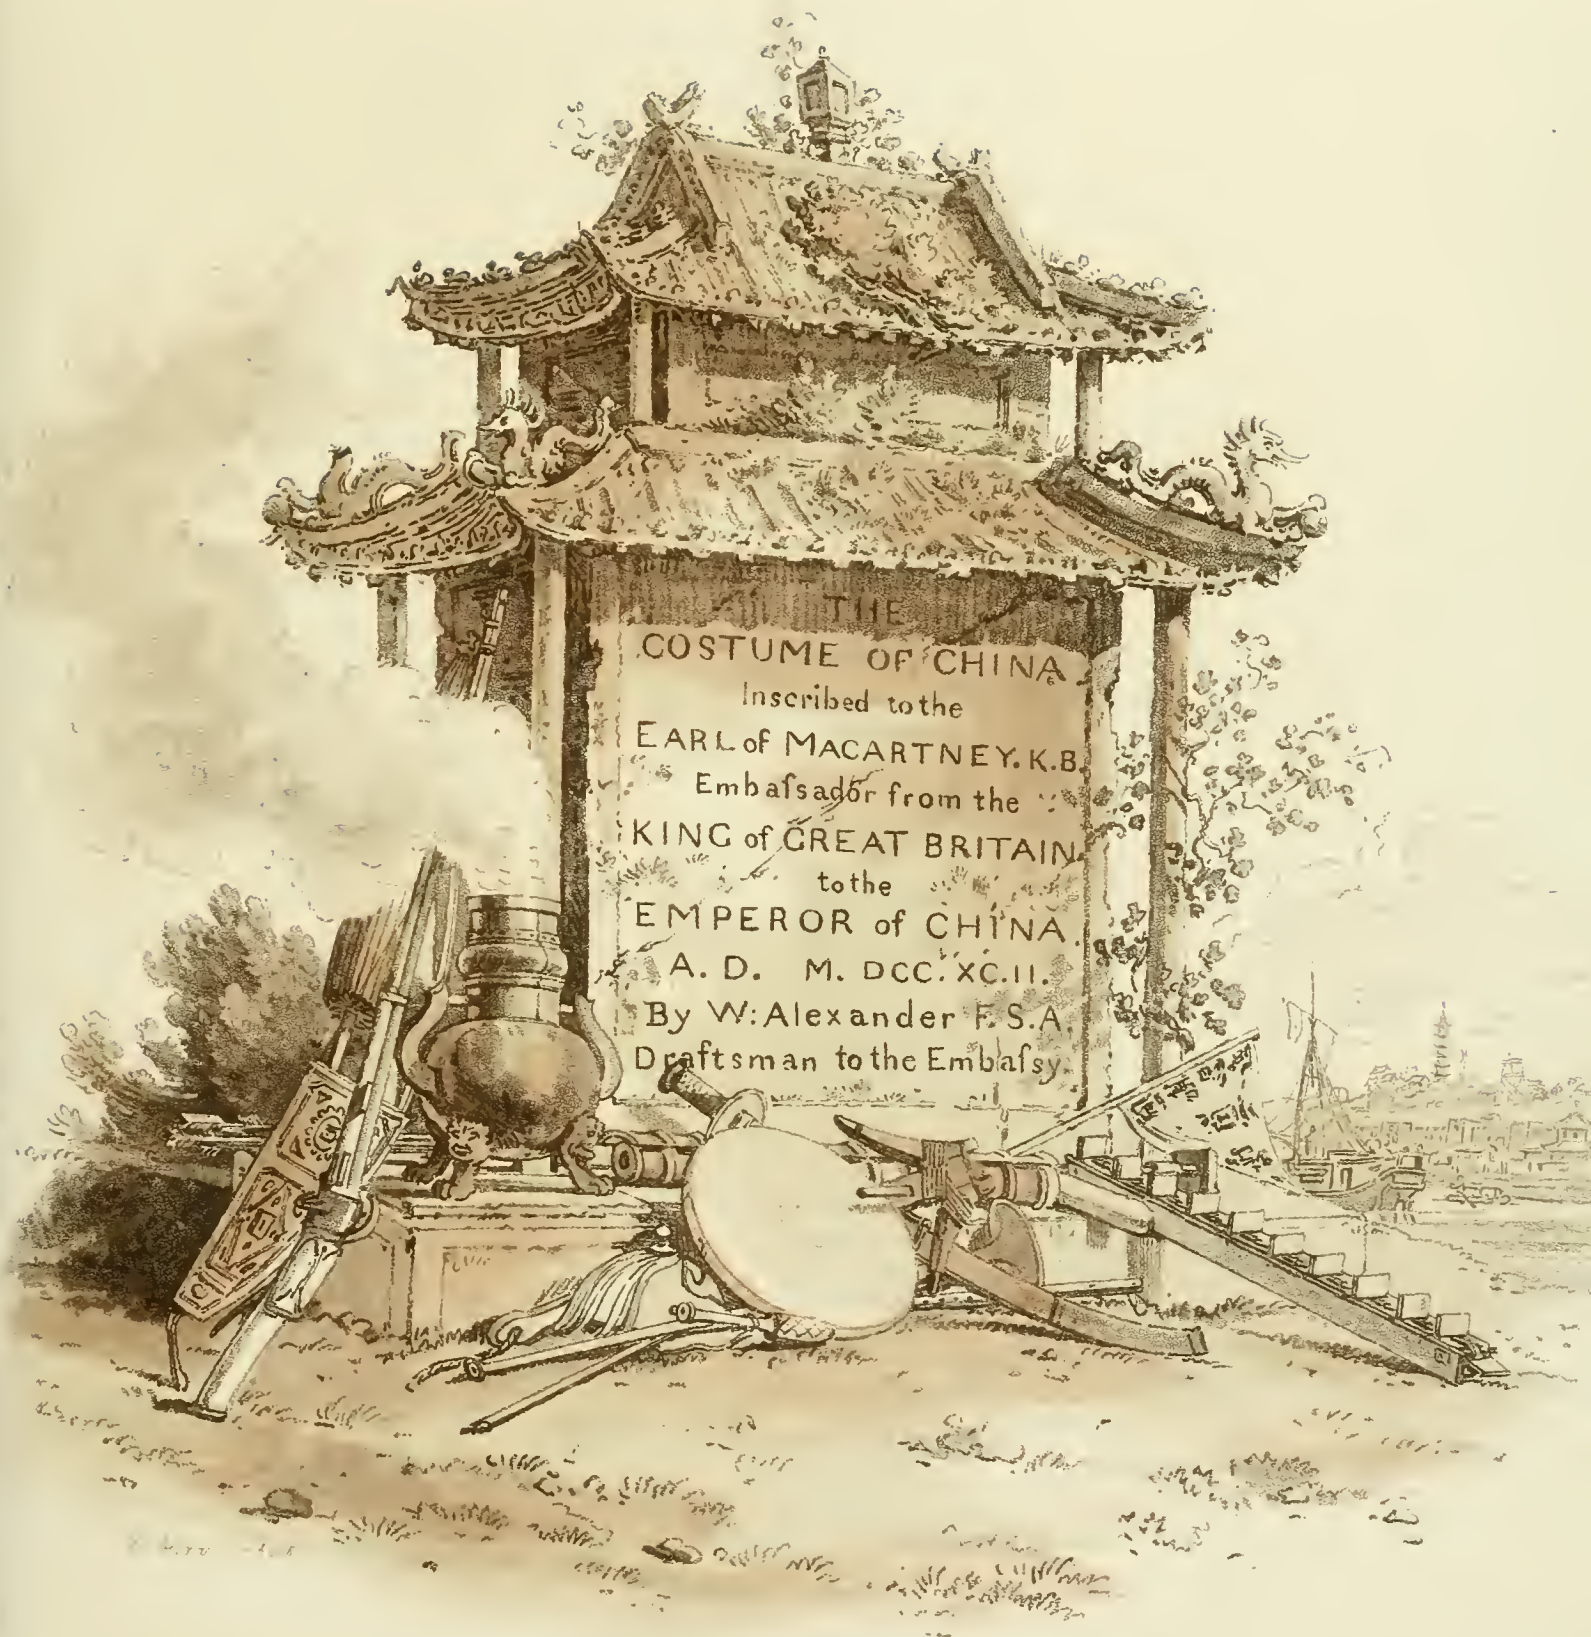 THE
COSTUME OF CHINA
Inscribed to the
EARL of MACARTNEY. K.B.
Embaſsador from the
KING of GREAT BRITAIN.
to the
EMPEROR of CHINA.
A. D. M. DCC. XC.II.
By W: Alexander F. S. A.
Draftsman to the Embaſsy.